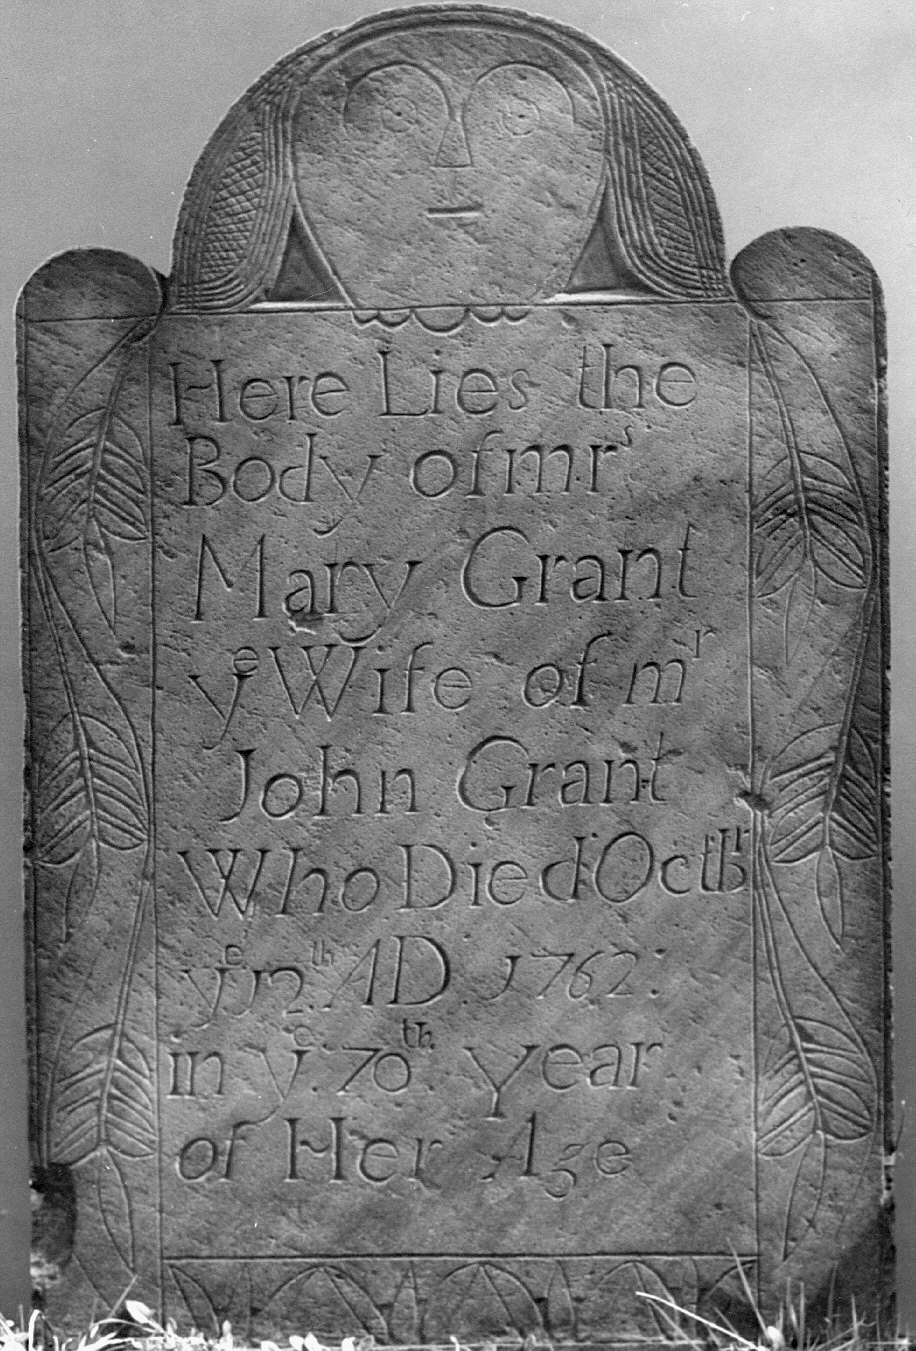 Here Lies the
Body of mrs
Mary Grant
ye Wife of mr
John Grant
Who Died Octb
ye 12th AD 1762.
in ye 70th Year
of Her Age